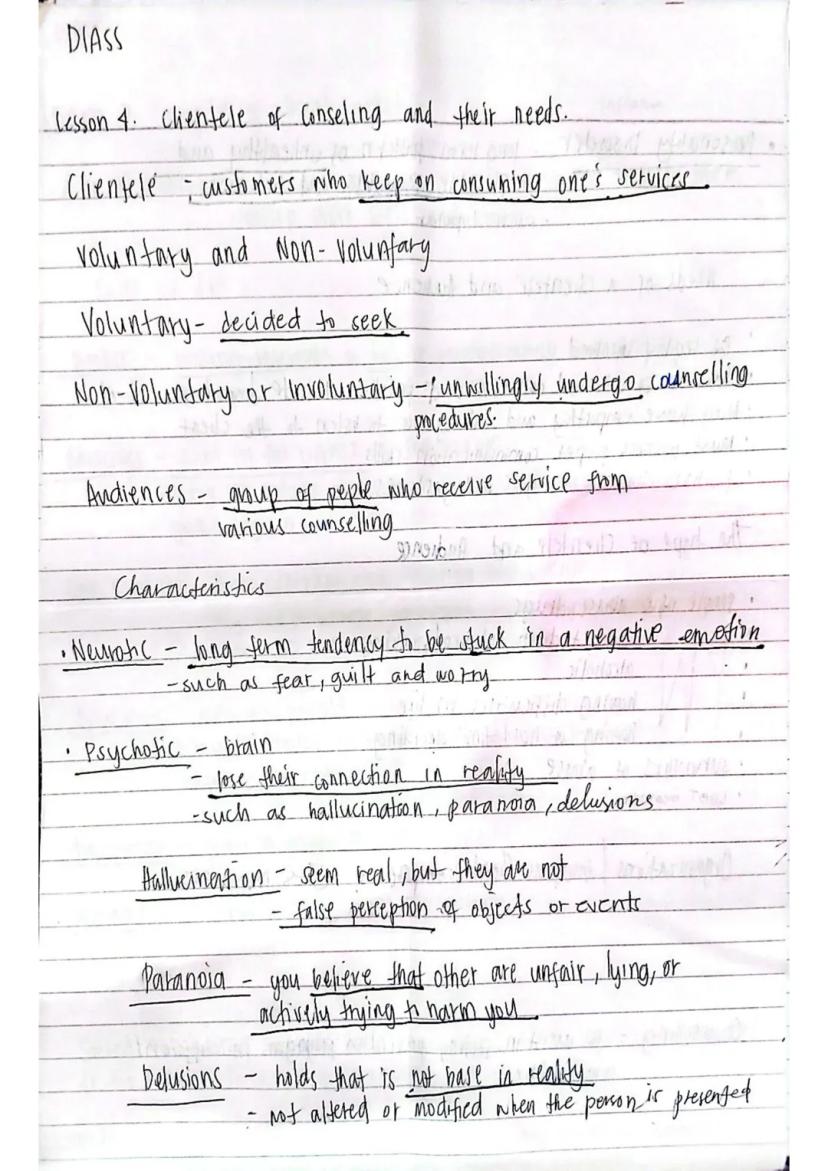 DIASS
Lesson 4. Clientele of Conseling and their needs.
Clientele - customers who keep on consuming one's services.
Voluntary and Non-Voluntary
Voluntary - decided to seek
Non-Voluntary or Involuntary - unwillingly undergo counselling
procedures.
Audiences - group of peple who receive service from
various counselling
Characteristics
• Neurotic - long term tendency to be stuck in a negative emotion
- such as fear, guilt and worry
• Psychotic - brain
- lose their connection in reality
- such as hallucination, paranoia, delusions
Hallucination - seem real, but they are not
- false perception of objects or events
Paranoia - you believe that other are unfair, lying, or
actively trying to harm you
Delusions - holds that is not base in reality
- not altered or modified when the person is presented